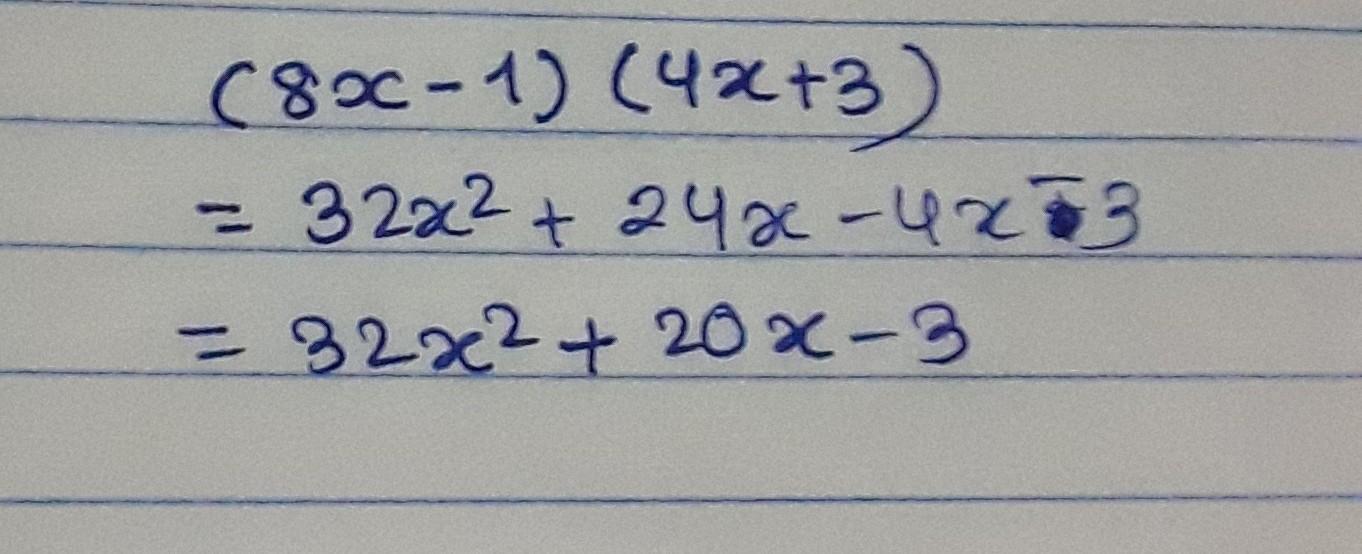 (8x-1) (4x+3)
= 32x² + 24x - 4x - 3
= 32x² + 20x - 3